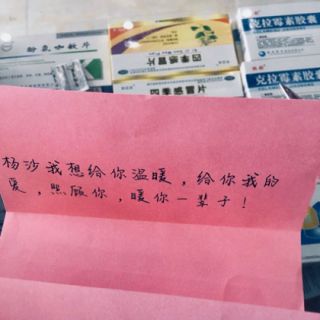 酚氨咖敏片
四季感冒片
四季感冒片
克拉霉素胶囊
克拉霉素胶囊
杨沙我想给你温暖,给你我的
爱,照顾你,暖你一辈子!